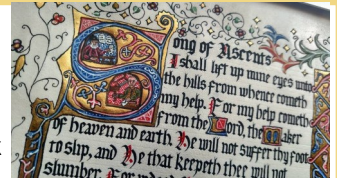 Song of Ascents
I shall lift up mine eyes unto
the hills from whence cometh
my help. For my help cometh
from the Lord, the Maker
of heaven and earth. He will not suffer thy foot
to slip, and He that keepeth thee will not
slumber. For